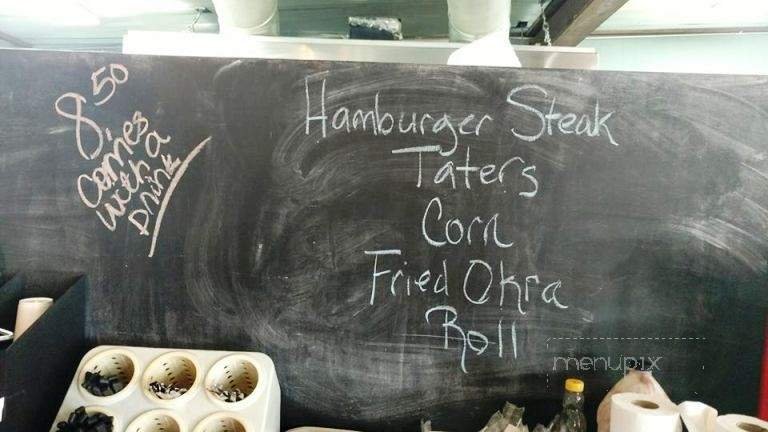 8.50
Comes
with a
Drink
Hamburger Steak
Taters
Corn
Fried Okra
Roll
menupix